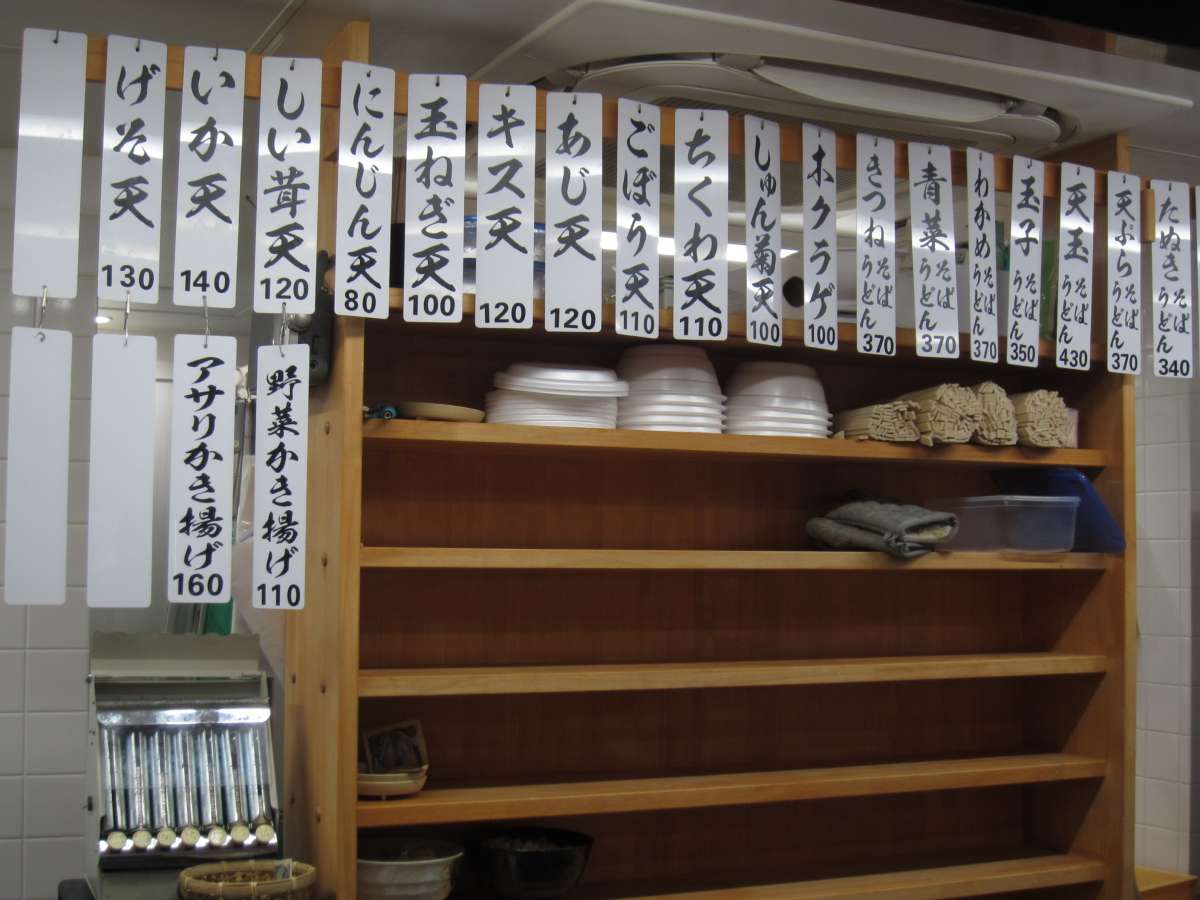 たぬき
そば
うどん
340
天ぷら
そば
うどん
370
天玉
そば
うどん
430
玉子
そば
うどん
350
わかめ
そば
うどん
370
青菜
そば
うどん
370
きつね
そば
うどん
370
木クラゲ
100
しゅん菊天
100
ちくわ天
110
ごぼう天
110
あじ天
120
キス天
120
玉ねぎ天
100
にんじん天
80
しい茸天
120
いか天
140
げそ天
130
野菜かき揚げ
110
アサリかき揚げ
160